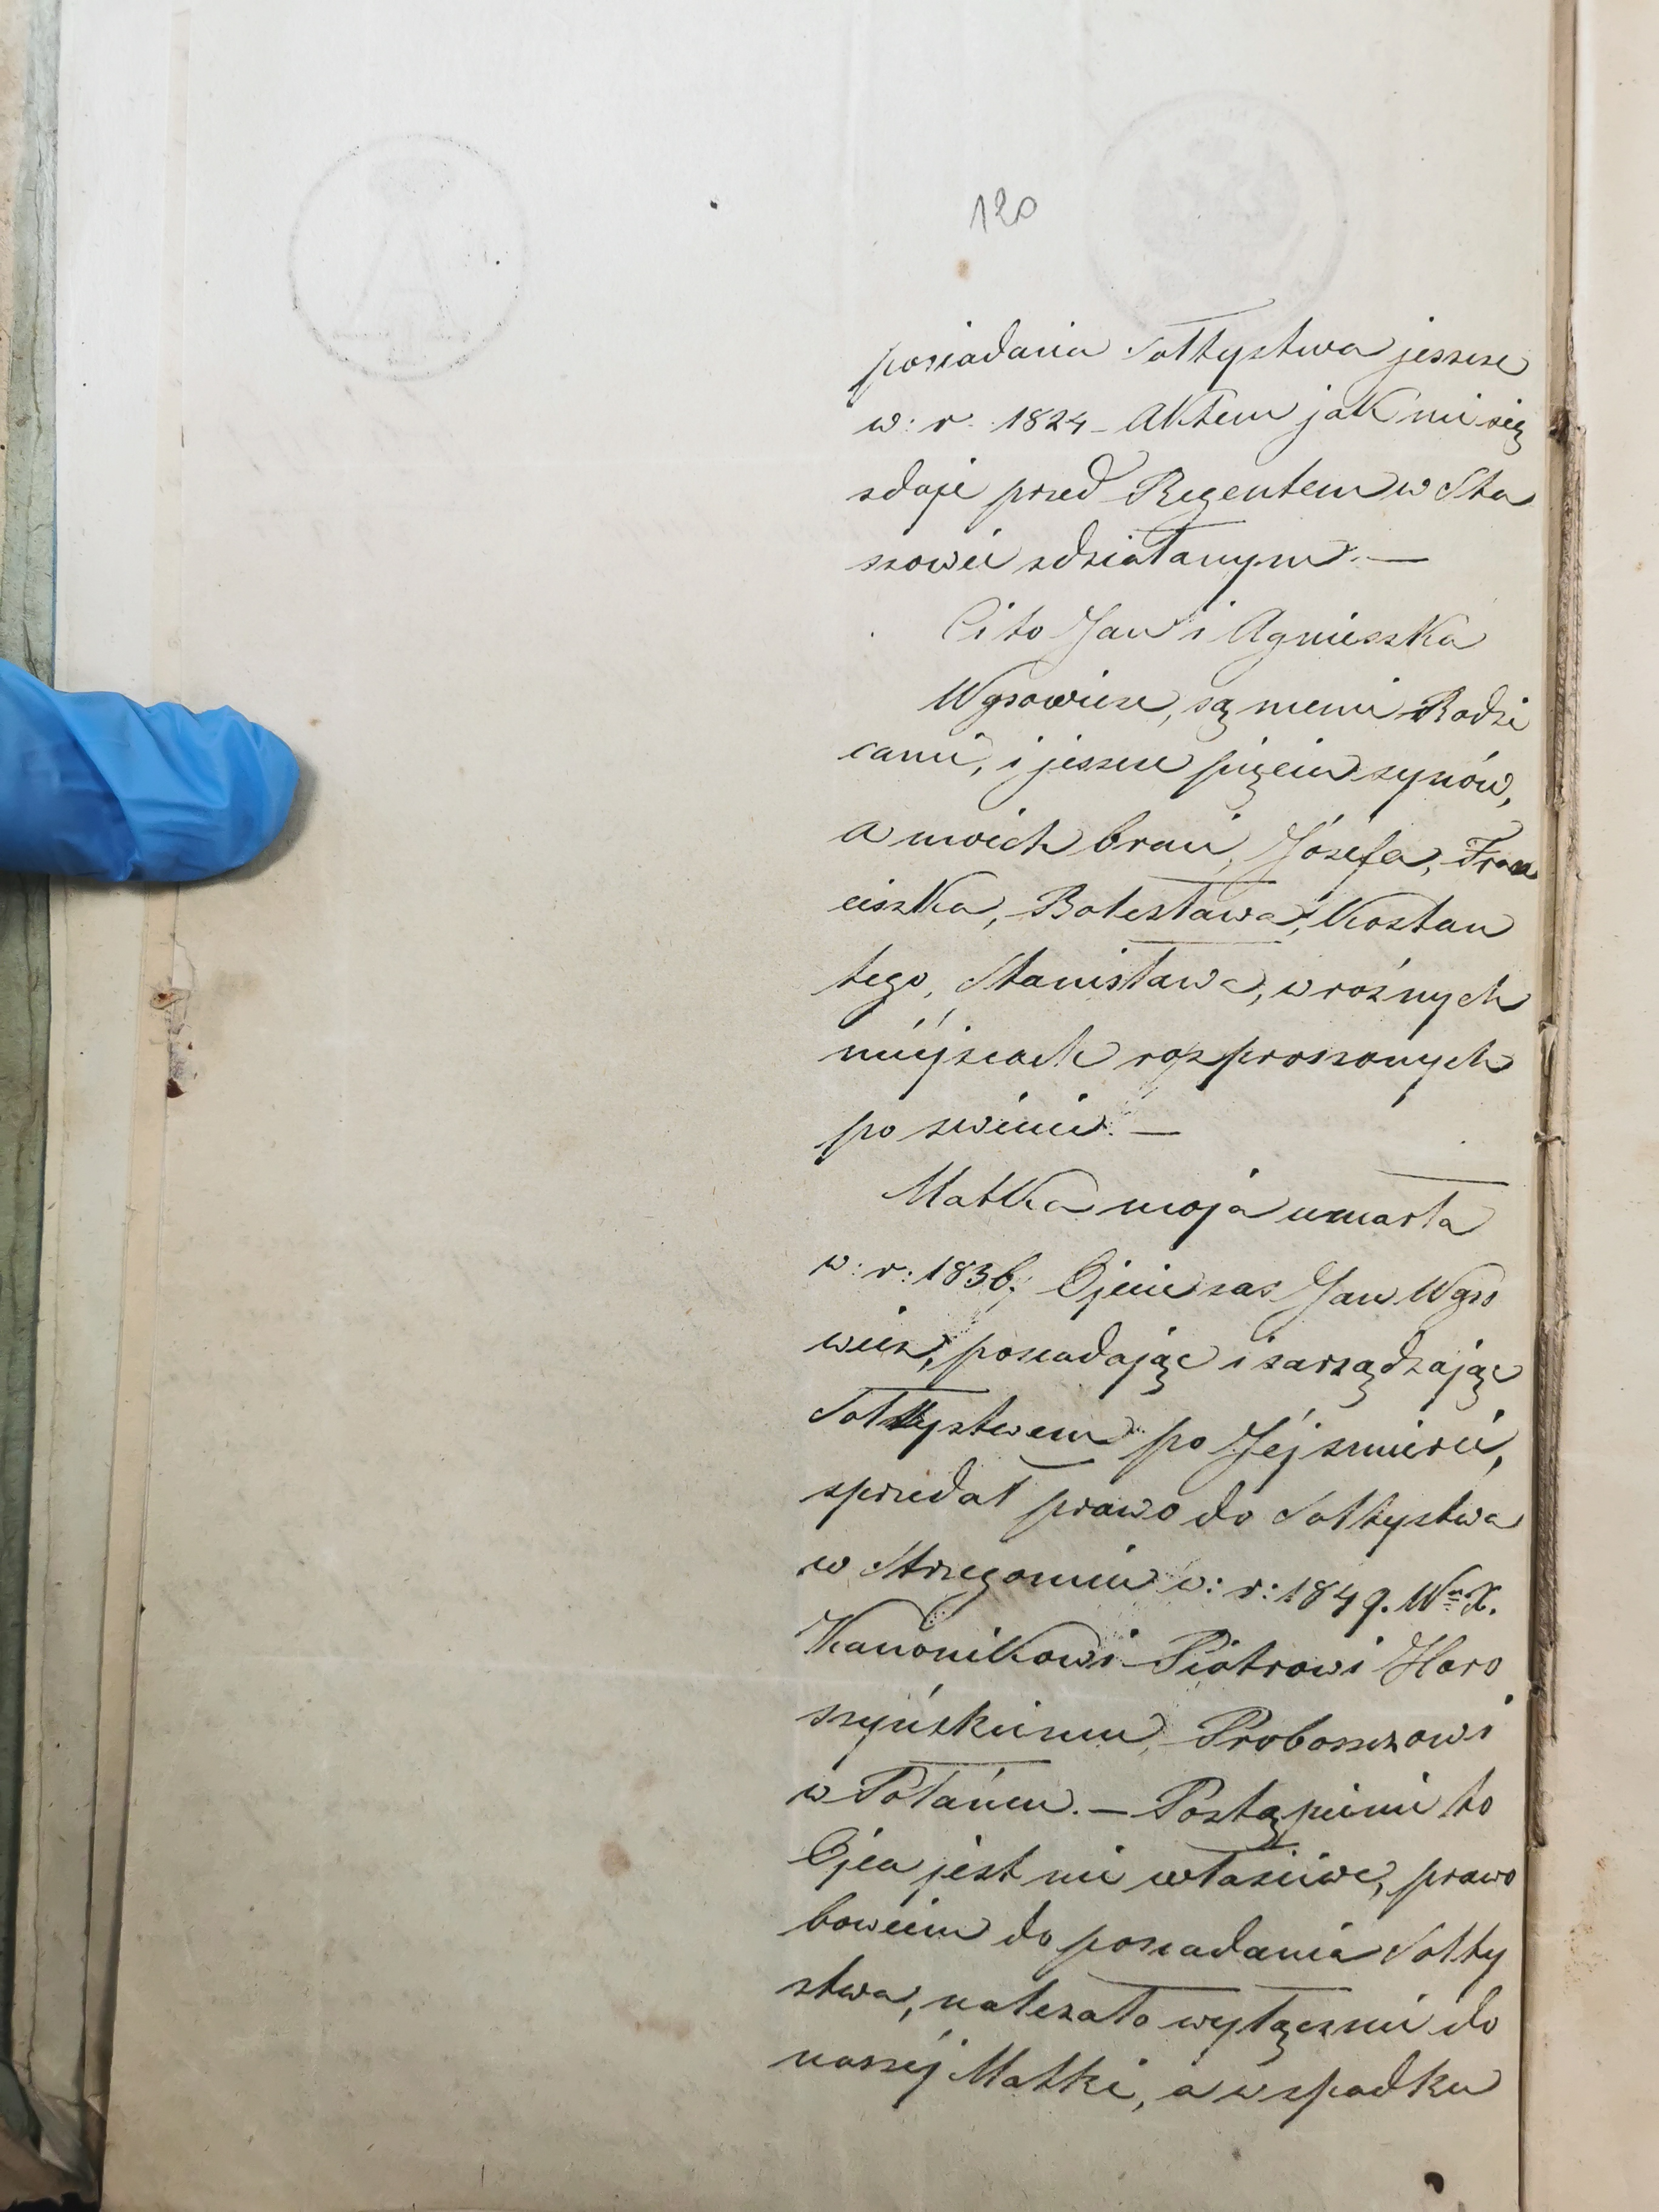 120
posiadania Sołtystwa jeszcze
w: r: 1824 – Aktem jak mi się
zdaje przed Regentem w Sta
szowie zdziałanym. —
Ci to Jan i Agnieszka
Wąsowicze, są memi Rodzi
cami, i jeszcze pięciu synów,
a moich braci, Józefa, Fran
ciszka, Bolesława, Kostan
tego, Stanisława, w róznych
miéjscach rozproszonych
po swiecie. —
Matka moja umarła
w: r: 1836; Ojciec zas Jan Wąso
wicz, posiadając i zarządzając
Sołtystwem po Jéj smierci,
sprzedał prawo do Sołtystwa
w Strzegomiu w: r: 1849. W̅m̅ X.
Kanonikowi Piotrowi Haro
szyńskiemu, Proboszczowi
w Połańcu. — Postąpienie to
Ojca jest nie własciwe, prawo
bowiem do posiadania Sołty
stwa, nalezało wyłącznie do
naszéj Matki, a w spadku